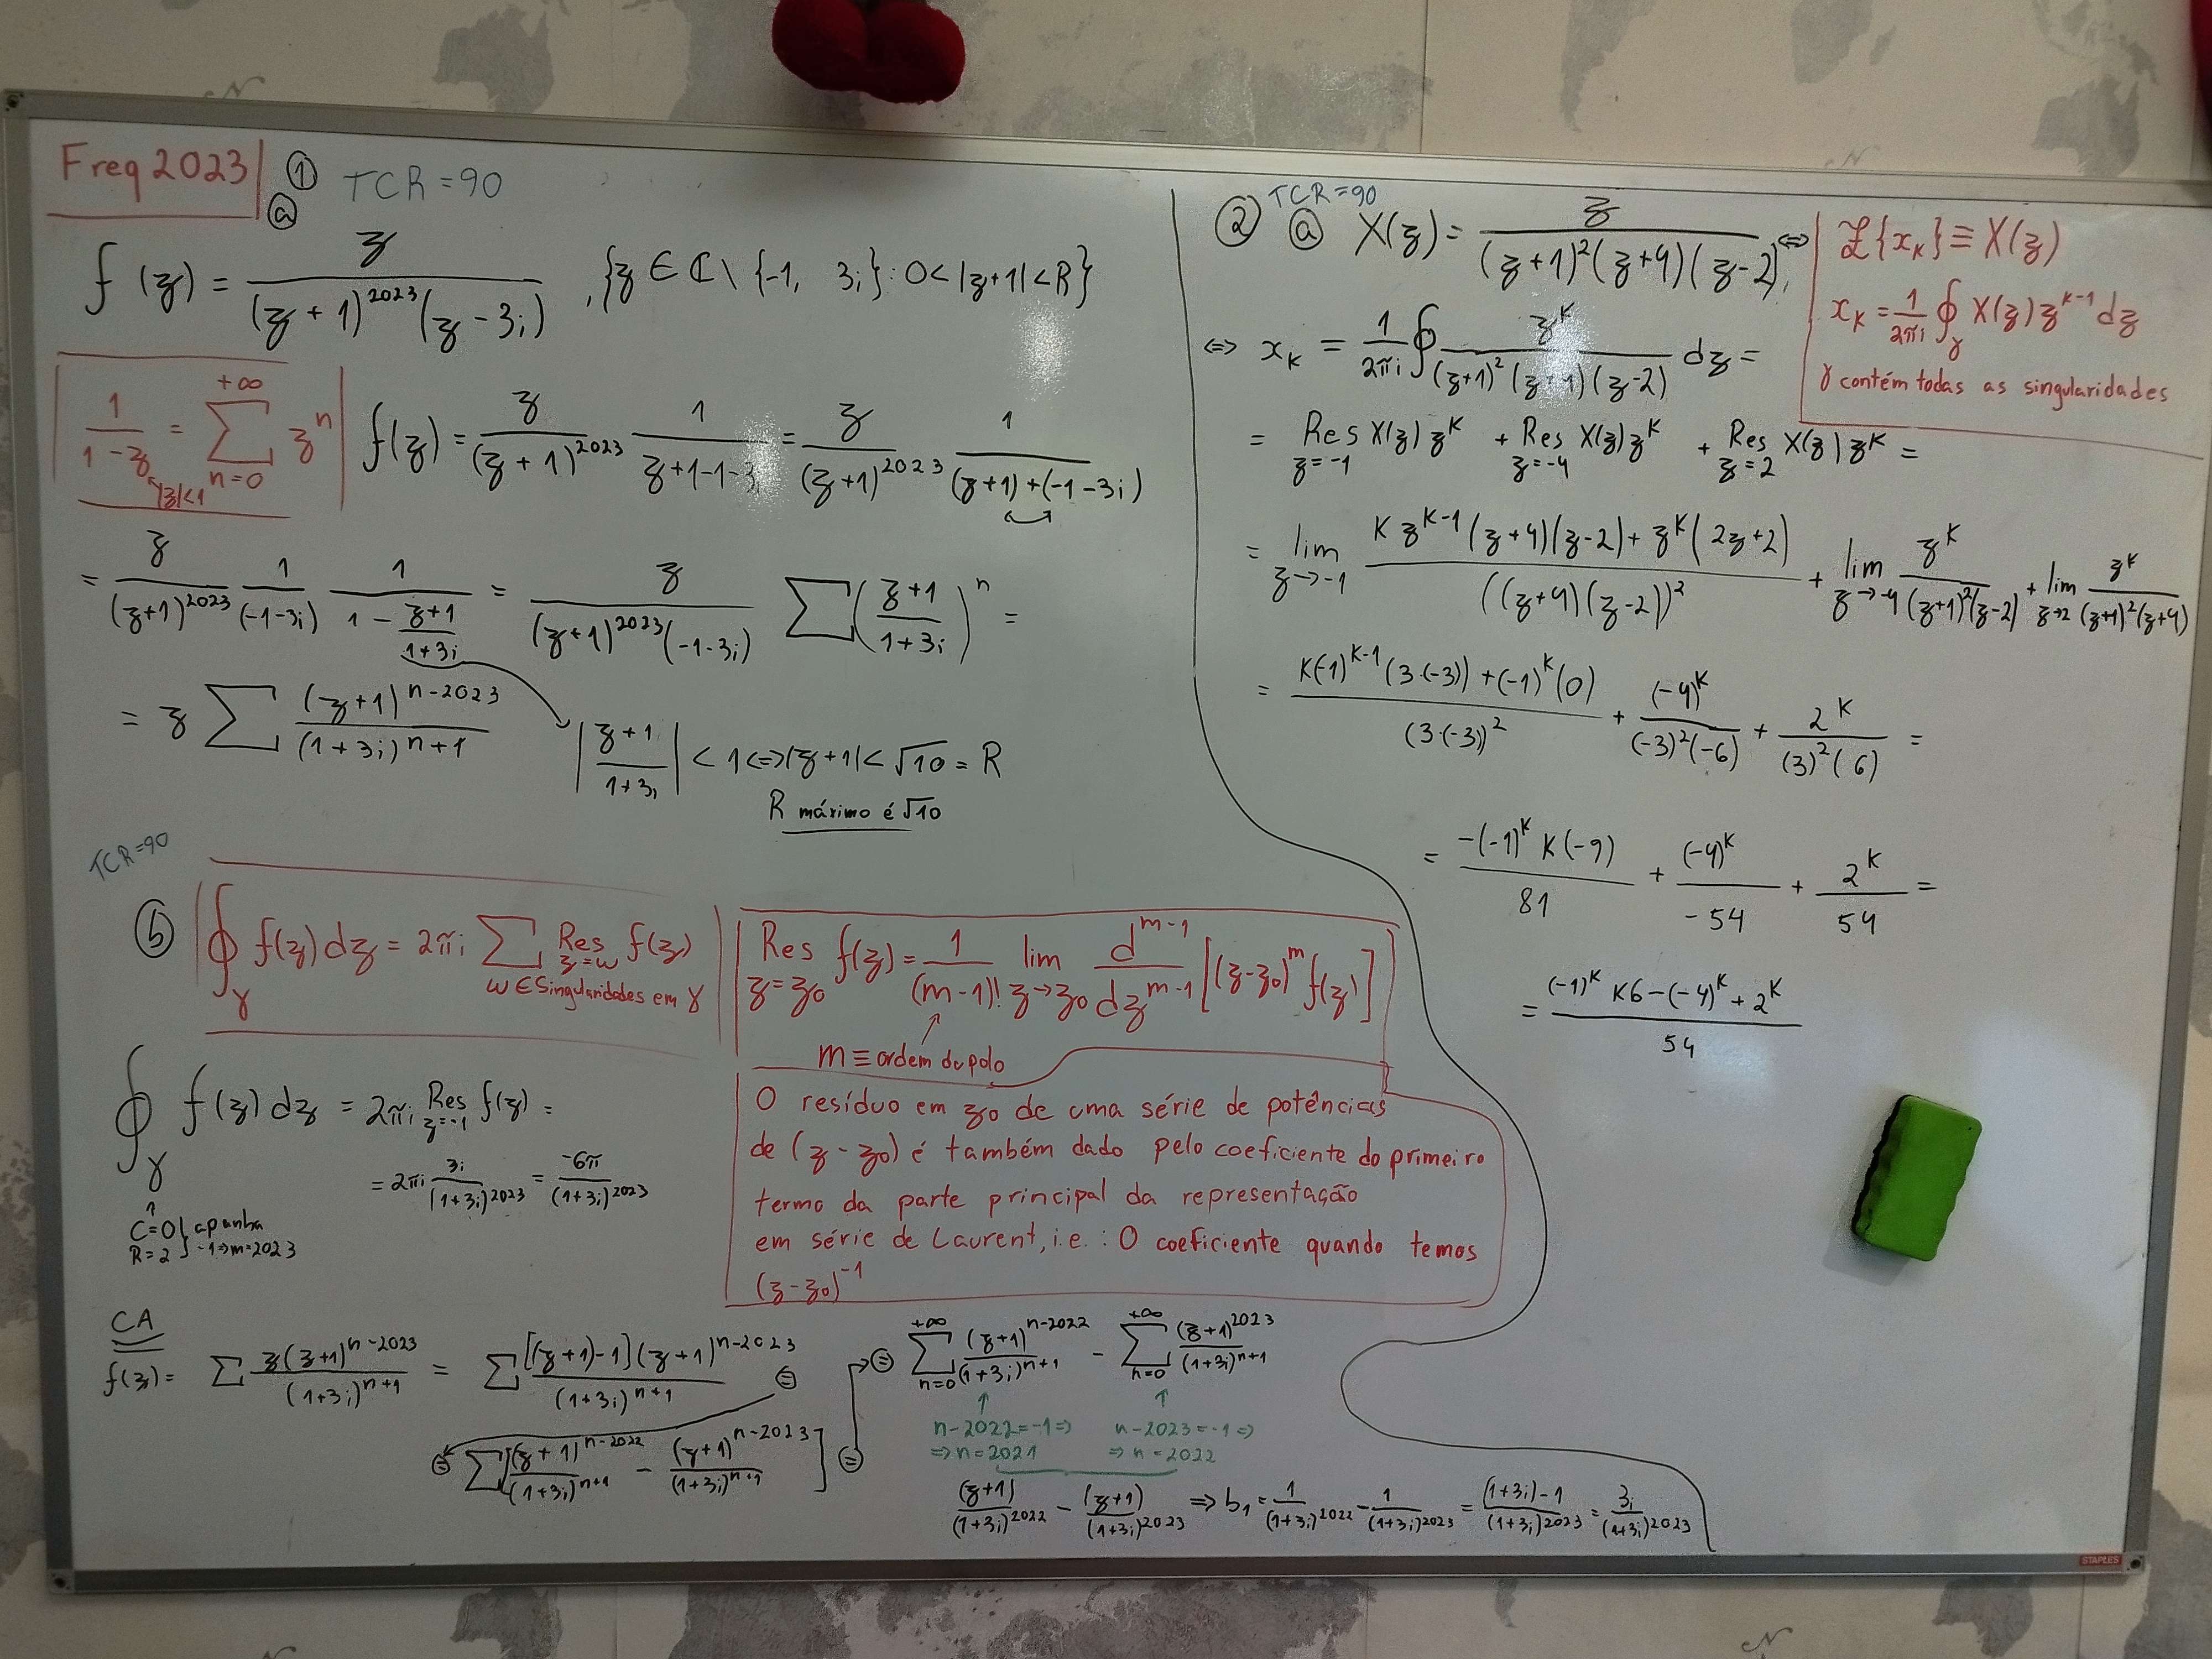 Freq 2023
① TCR = 90
ⓐ
f(z) = z / ((z+1)^2023 (z-3i)) , {z ∈ ℂ \ {-1, 3i} : 0 < |z+1| < R}
1/(1-z) = Σ_{n=0}^{+∞} z^n
|z|<1
f(z) = z/(z+1)^2023 · 1/(z+1-1-3i) = z/(z+1)^2023 · 1/((z+1)+(-1-3i))
= z/(z+1)^2023 · 1/(-1-3i) · 1/(1 - (z+1)/(1+3i)) = z/((z+1)^2023 (-1-3i)) Σ ((z+1)/(1+3i))^n =
= z Σ (z+1)^{n-2023}/(1+3i)^{n+1}
|(z+1)/(1+3i)| < 1 <=> |z+1| < √10 = R
R máximo é √10
TCR=90
ⓑ ∮_γ f(z) dz = 2πi Σ Res_{z=w} f(z)
w ∈ Singularidades em γ
Res_{z=z0} f(z) = 1/(m-1)! lim_{z→z0} d^{m-1}/dz^{m-1} [(z-z0)^m f(z)]
m ≡ ordem do polo
O resíduo em z0 de uma série de potências
de (z-z0) é também dado pelo coeficiente do primeiro
termo da parte principal da representação
em série de Laurent, i.e.: O coeficiente quando temos
(z-z0)^-1
∮_γ f(z) dz = 2πi Res_{z=-1} f(z) =
= 2πi 3i/(1+3i)^2023 = -6π/(1+3i)^2023
C=0 } apanha
R=2 } -1 => m=2023
CA
f(z) = Σ z(z+1)^{n-2023}/(1+3i)^{n+1} = Σ [(z+1)-1](z+1)^{n-2023}/(1+3i)^{n+1} ⊜
⊜ Σ [(z+1)^{n-2022}/(1+3i)^{n+1} - (z+1)^{n-2023}/(1+3i)^{n+1}] ⊜
⊜ Σ_{n=0}^{+∞} (z+1)^{n-2022}/(1+3i)^{n+1} - Σ_{n=0}^{+∞} (z+1)^{2023}/(1+3i)^{n+1}
n-2022=-1 => n-2023=-1 =>
=> n=2021 => n=2022
(z+1)/(1+3i)^2022 - (z+1)/(1+3i)^2023 => b1 = 1/(1+3i)^2022 - 1/(1+3i)^2023 = ((1+3i)-1)/(1+3i)^2023 = 3i/(1+3i)^2023
TCR=90
② ⓐ X(z) = z/((z+1)^2 (z+4)(z-2)) <=>
Z{x_k} ≡ X(z)
x_k = 1/(2πi) ∮_γ X(z) z^{k-1} dz
γ contém todas as singularidades
<=> x_k = 1/(2πi) ∮ z^k/((z+1)^2 (z+4)(z-2)) dz =
= Res_{z=-1} X(z) z^k + Res_{z=-4} X(z) z^k + Res_{z=2} X(z) z^k =
= lim_{z→-1} (k z^{k-1}(z+4)(z-2) + z^k(2z+2))/((z+4)(z-2))^2 + lim_{z→-4} z^k/((z+1)^2(z-2)) + lim_{z→2} z^k/((z+1)^2(z+4))
= (k(-1)^{k-1}(3·(-3)) + (-1)^k(0))/(3·(-3))^2 + (-4)^k/((-3)^2(-6)) + 2^k/((3)^2(6)) =
= -(-1)^k k(-9)/81 + (-4)^k/-54 + 2^k/54 =
= ((-1)^k k6 - (-4)^k + 2^k)/54
STAPLES